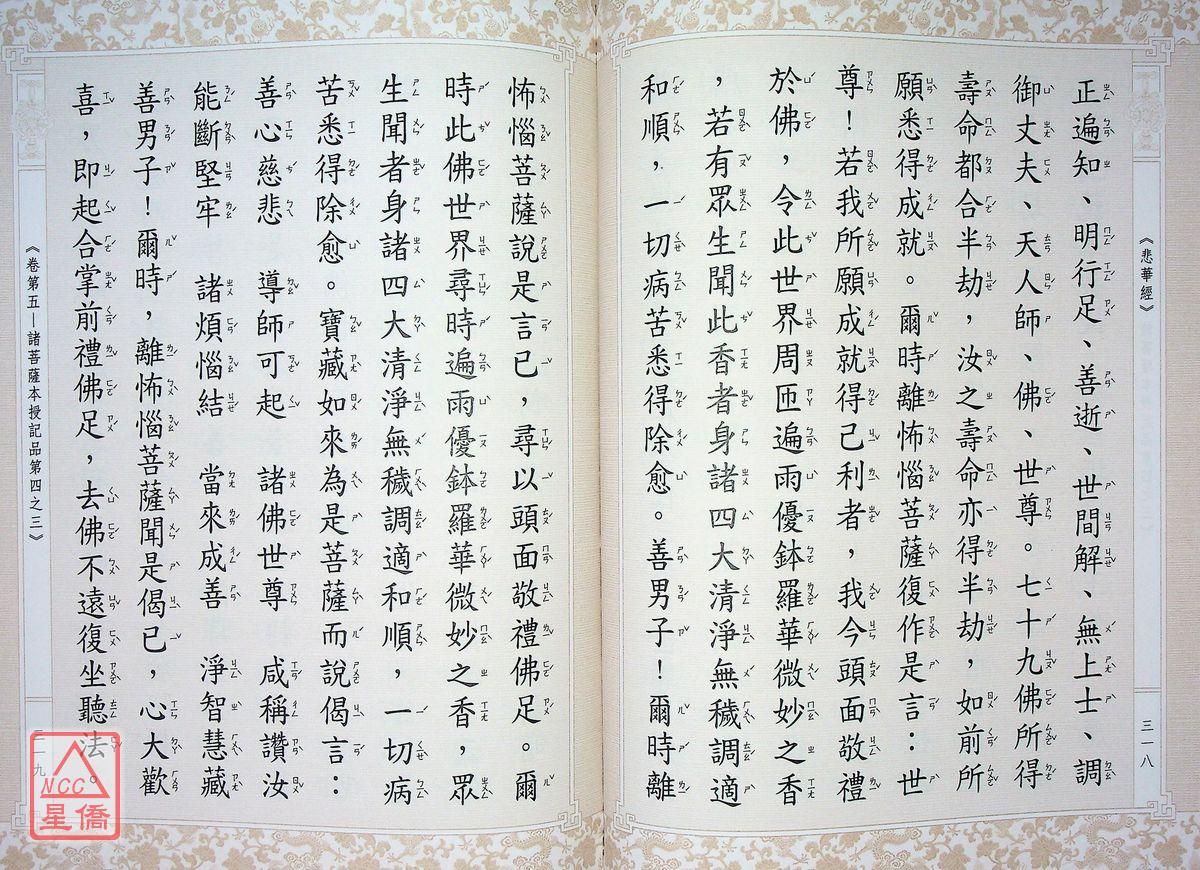 《悲華經》
三一八
正遍知、明行足、善逝、世間解、無上士、調
御丈夫、天人師、佛、世尊。七十九佛所得
壽命都合半劫，汝之壽命亦得半劫，如前所
願悉得成就。爾時離怖惱菩薩復作是言：世
尊！若我所願成就得己利者，我今頭面敬禮
於佛，令此世界周匝遍雨優鉢羅華微妙之香
，若有眾生聞此香者身諸四大清淨無穢調適
和順，一切病苦悉得除愈。善男子！爾時離
怖惱菩薩說是言已，尋以頭面敬禮佛足。爾
時此佛世界尋時遍雨優鉢羅華微妙之香，眾
生聞者身諸四大清淨無穢調適和順，一切病
苦悉得除愈。寶藏如來為是菩薩而說偈言：
善心慈悲　導師可起　諸佛世尊　咸稱讚汝
能斷堅牢　諸煩惱結　當來成善　淨智慧藏
善男子！爾時，離怖惱菩薩聞是偈已，心大歡
喜，即起合掌前禮佛足，去佛不遠復坐聽法。
《卷第五－諸菩薩本授記品第四之三》
三一九
NCC
星僑